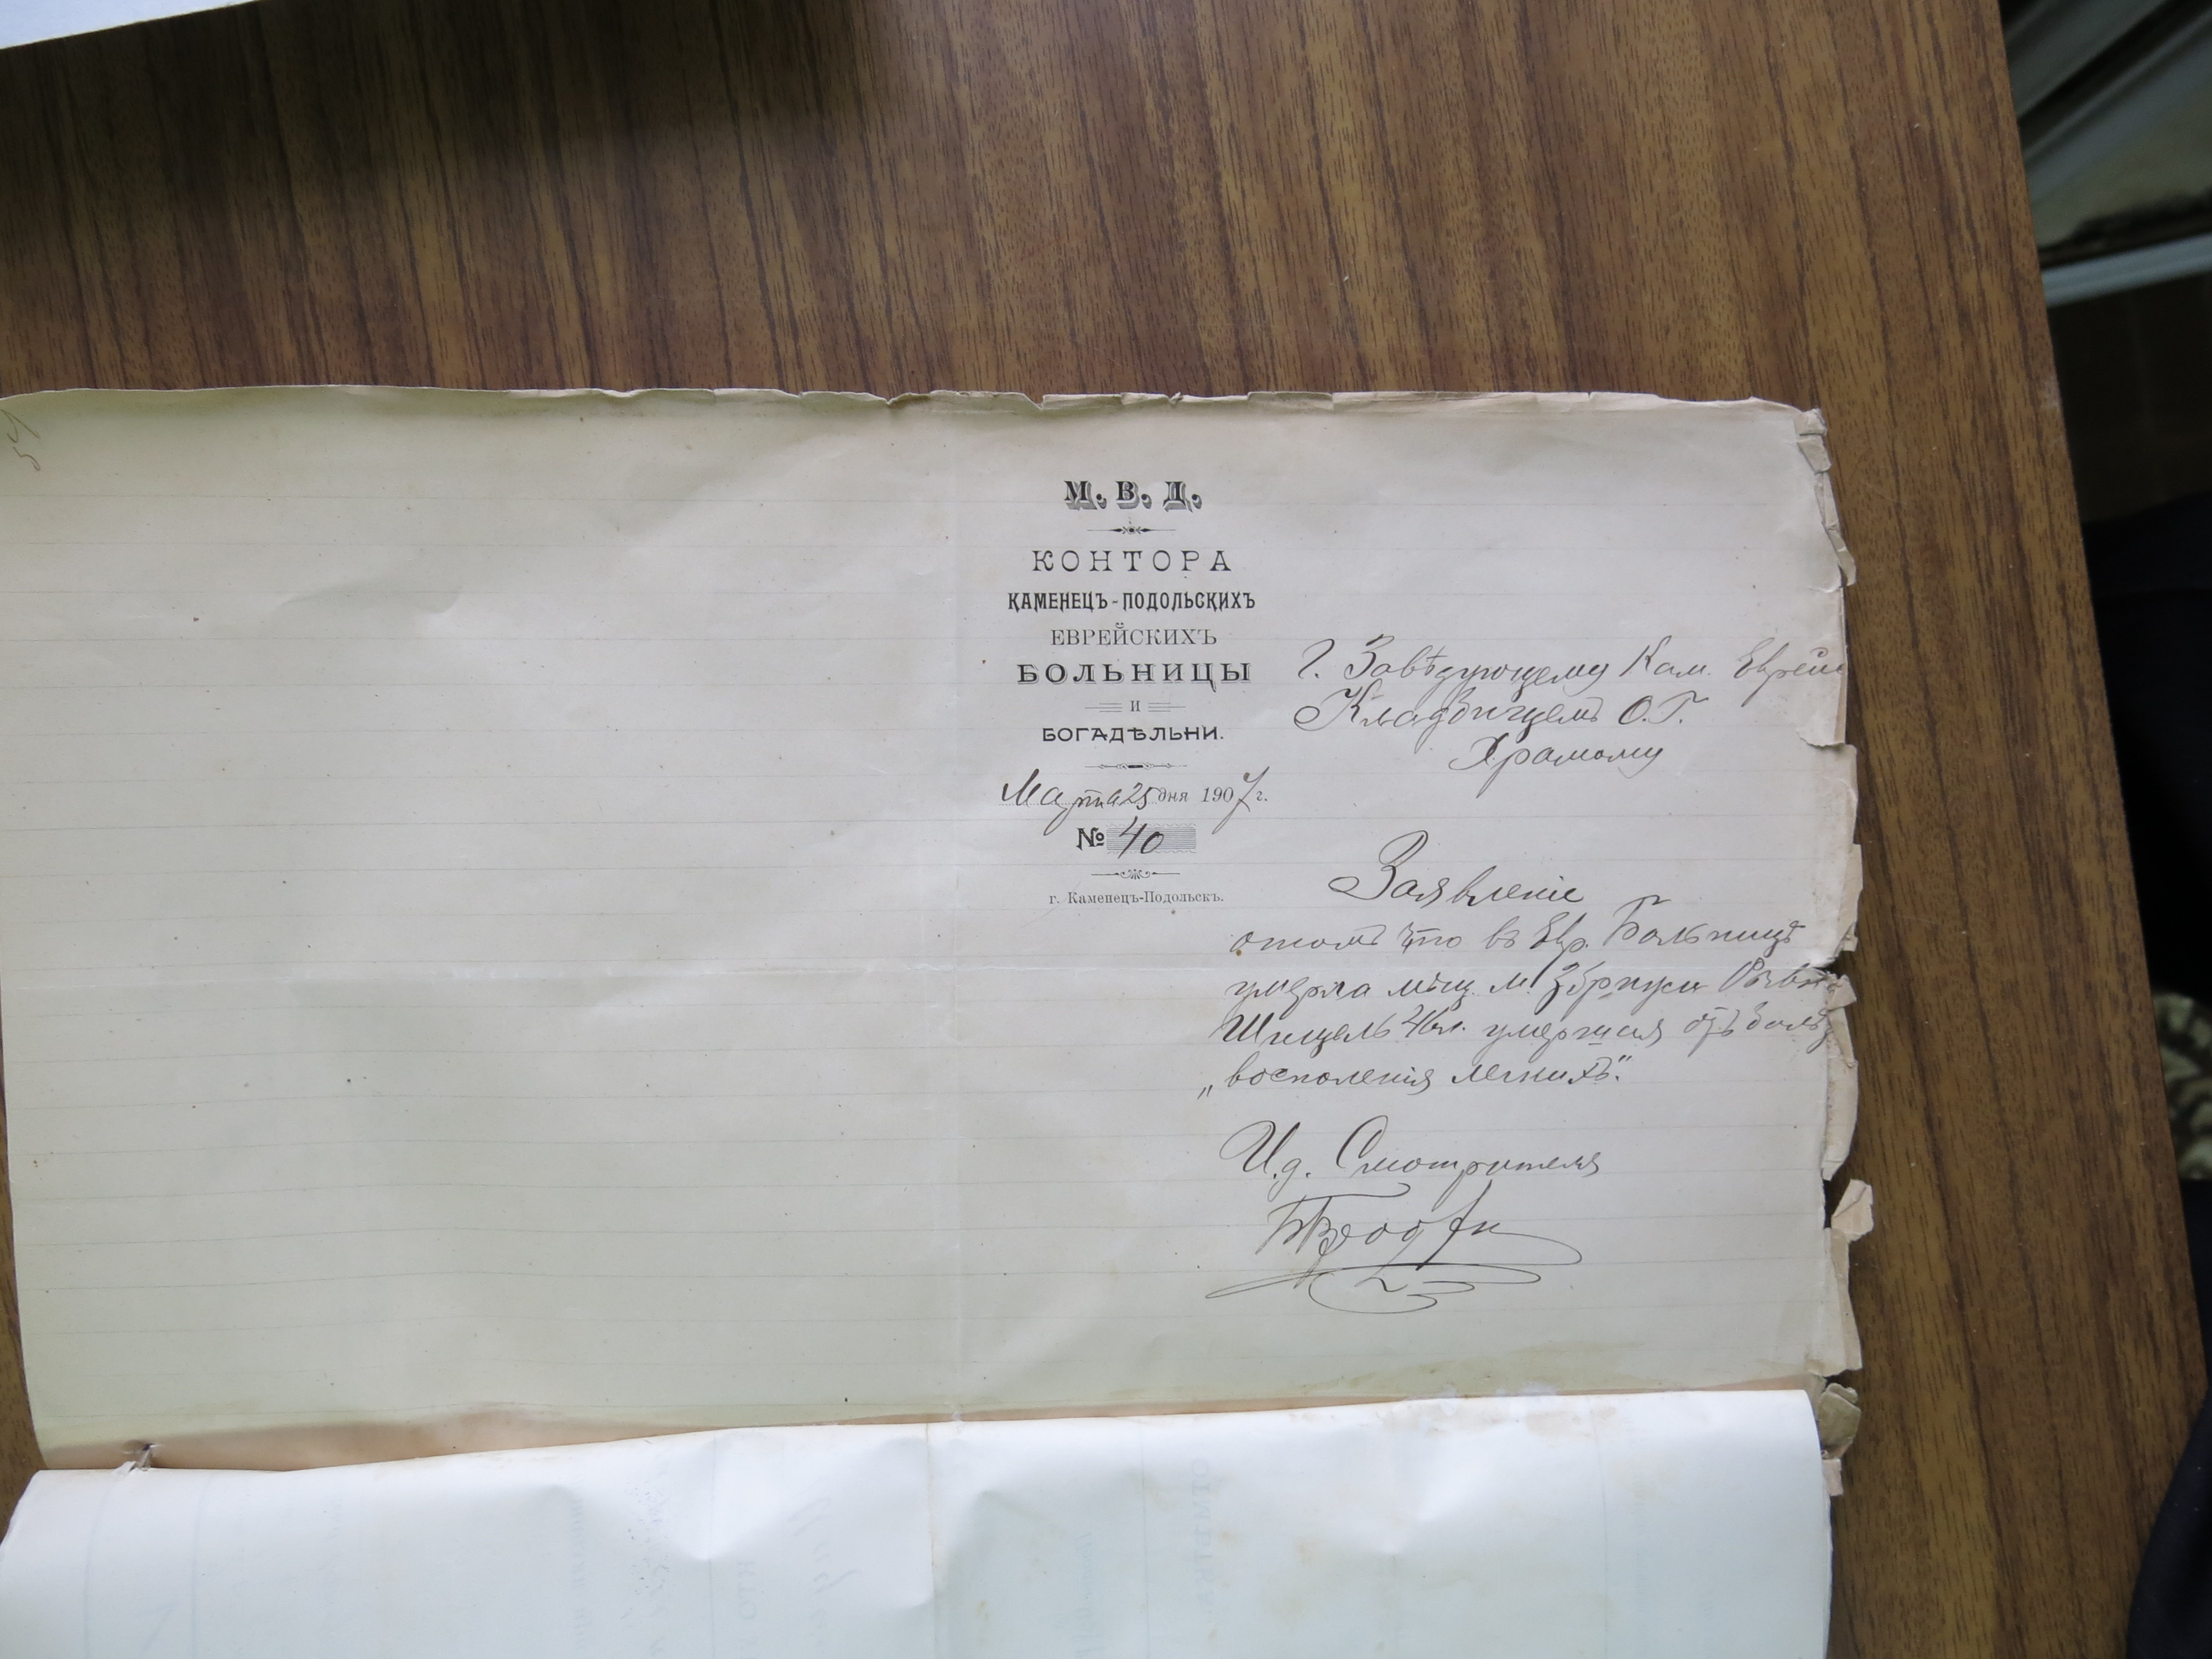 М. В. Д.
КОНТОРА
КАМЕНЕЦЪ-ПОДОЛЬСКИХЪ
ЕВРЕЙСКИХЪ
БОЛЬНИЦЫ
И
БОГАДѢЛЬНИ.
Марта 25 дня 1907 г.
№ 40
г. Каменецъ-Подольскъ.
Г. Завѣдующему Кам. Еврейс
Кладбищемъ О. Г.
Хромому
Заявленіе
отомъ что въ Евр. Больницѣ
умерла мѣщ. м. Збрижи
46 л. умершая отъ болѣз
„восполенія легкихъ".
И. д. Смотрителя